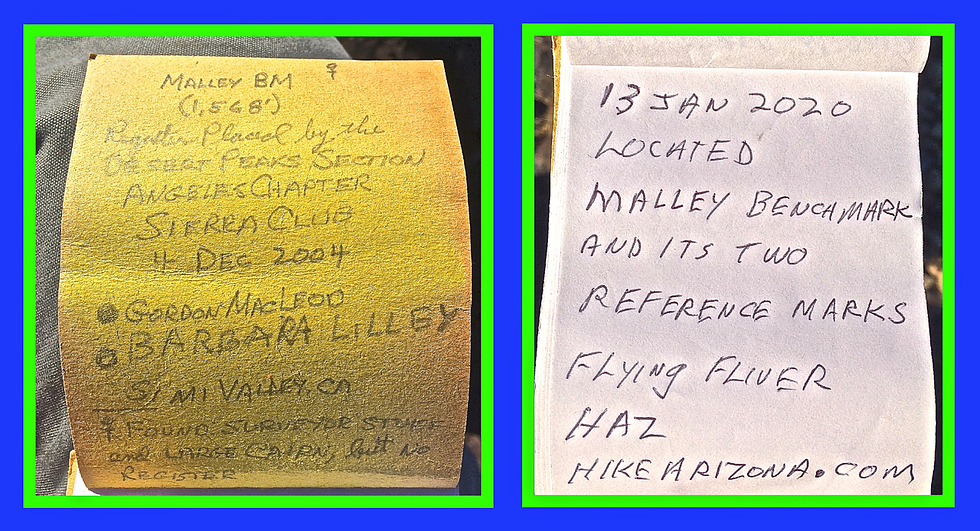 MALLEY BM
(1,568')
Register Placed by the
DESERT PEAKS SECTION
ANGELES CHAPTER
SIERRA CLUB
11 DEC 2004
GORDON MACLEOD
BARBARA LILLEY
SIMI VALLEY, CA
FOUND SURVEYOR STUFF
and LARGE CAIRN, but no
REGISTER
13 JAN 2020
LOCATED
MALLEY BENCHMARK
AND ITS TWO
REFERENCE MARKS
FLYING FLIVER
HAZ
HIKEARIZONA.COM